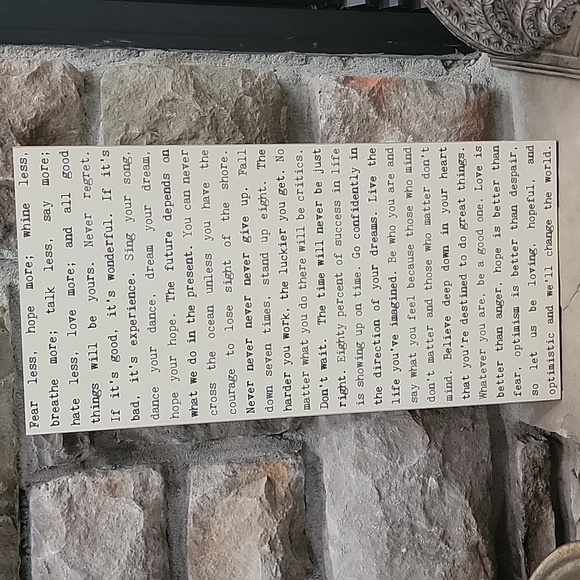 Fear less, hope more; whine less,
breathe more; talk less, say more;
hate less, love more; and all good
things will be yours. Never regret.
If it's good, it's wonderful. If it's
bad, it's experience. Sing your song,
dance your dance, dream your dream,
hope your hope. The future depends on
what we do in the present. You can never
cross the ocean unless you have the
courage to lose sight of the shore.
Never never never never give up. Fall
down seven times, stand up eight. The
harder you work, the luckier you get. No
matter what you do there will be critics.
Don't wait. The time will never be just
right. Eighty percent of success in life
is showing up on time. Go confidently in
the direction of your dreams. Live the
life you've imagined. Be who you are and
say what you feel because those who mind
don't matter and those who matter don't
mind. Believe deep down in your heart
that you're destined to do great things.
Whatever you are, be a good one. Love is
better than anger, hope is better than
fear, optimism is better than despair,
so let us be loving, hopeful, and
optimistic and we'll change the world.